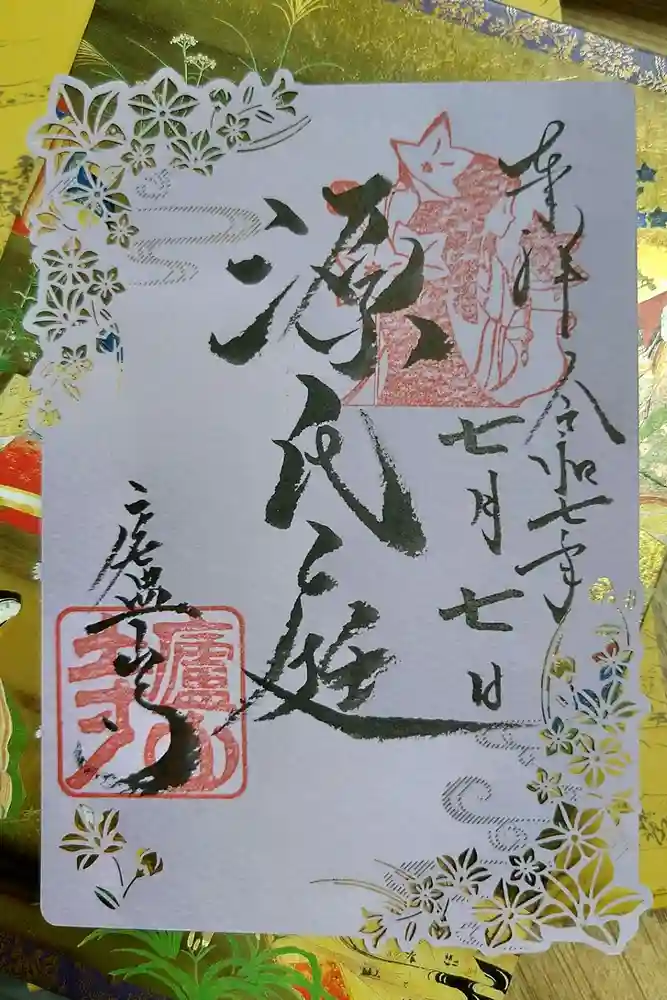 奉拝
令和七年
七月七日
源氏庭
廬山寺
廬山寺